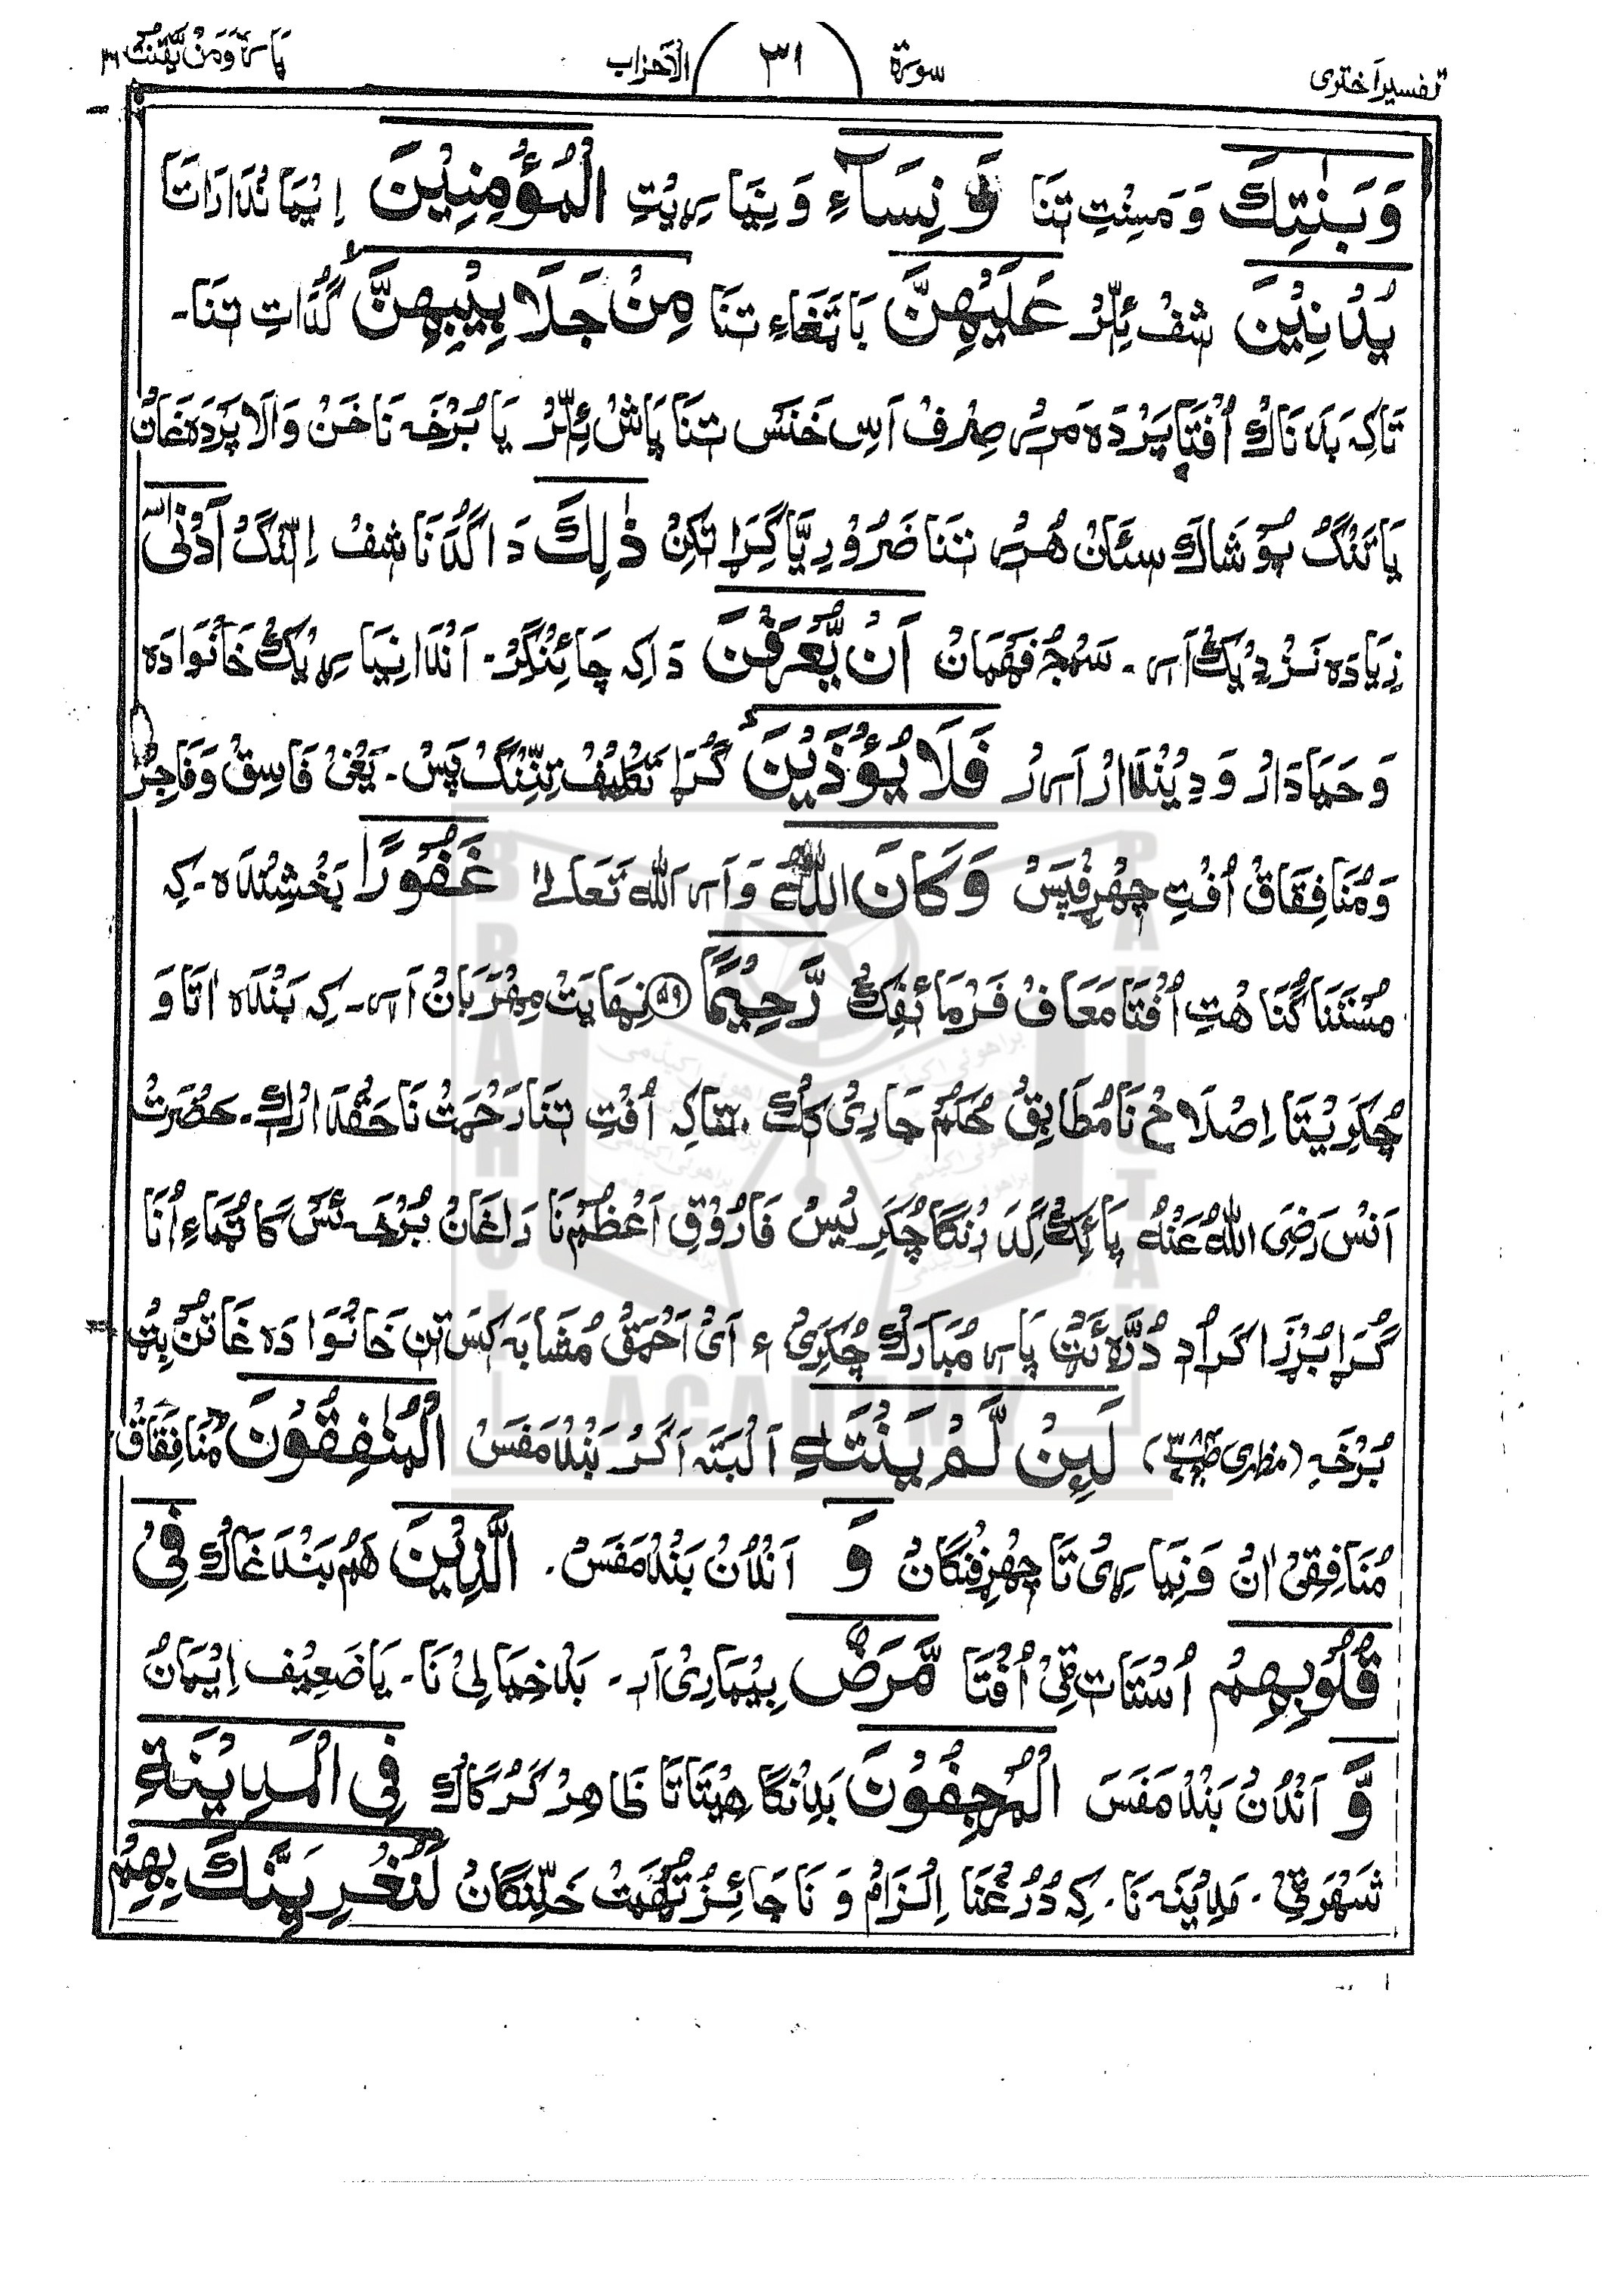 تفسیر اختری سورة ٣١ الاحزاب پاره ومن یقنت
وَبَنٰتِكَ وَ مَسِنْتِ تَنَا وَ نِسَآءِ وَ نِیَاڑیتِ الْمُؤْمِنِیْنَ اِیْمَانْدَارَاتَا
یُدْنِیْنَ شفْ ئِلّرْ عَلَیْهِنَّ بَاتَغَاءِ تنَا مِنْ جَلَابِیْبِهِنَّ گُدَّاتِ تنَا۔
تَاکِه بَدَنَاكْ اُفْتَا پَرْدَه مَرِیر صِرْفْ اَسِ خَنَس تنَا پَاشْ ئِلّرْ یَا بُرْخَه نَا خَنْ وَالَا پَرْدَه غَانْ
یَا تَنْگْ پُوْشَاكْ سِئَانْ هُرِیر تنَا ضَرُوْرِیَّا گِرَا تکِنْ ذٰلِكَ دَا گُدَّنَا شفْ اِلّنْگْ اَدْنٰۤی
زِیَادَه نَزْدِیْكْ اَے۔ سَمْجُ فَهْمَانْ اَنْ یُّعْرَفْنَ دَاکِه چَائِنْگِرْ۔ اَنْدَا نِیَاڑیْكْ خَانْوَادَه
وَ حَیَادَارْ وَ دِیْنْدَارْ اَرِیرْ فَلَا یُؤْذَیْنَ گُڑَا تَکْلِیْفْ تِنِّنْگپَسْ۔ یَعْنِیْ فَاسِقْ وَ فَاجِرْ
وَ مُنَافِقَاقْ اُفْتِ چِهْرِفپَسْ وَ كَانَ اللّٰهُ وَ اَے اللّٰه تَعَالٰی غَفُوْرًا بَخْشِنْدَه۔ کِه
مُسْتَنَا گُنَاهتِ اُفْتَا مَعَافْ فَرْمَائفِكْ رَّحِیْمًا ﴿٥٩﴾ نِهَایَتْ مِهْرَبَانْ اَے۔ کِه بَنْدَه اٰتَا وَ
چُكَرِیْتَا اِصْلَاحْ نَا مُطَابِقْ حُكْمْ جَارِیْ كِكْ۔ تَاکِه اُفْتِ تنَا رَحْمَتْ نَا حَقْدَارْ كِكْ۔ حَضْرَتْ
اَنَسْ رَضِیَ اللّٰهُ عَنْهُ پَائِكْ گِدَرْنْگَا چُكَرِیْسْ فَارُوْقِ اَعْظَمْ نَا رَاغَانْ بُرْخَه ئَسْ كَاتُمَاءِ اُنَا
گُڑَا بُرْزَا كَرْاد دُرَّه ئَتْ پَارے مُبَارَكْ چُكَرِیْ ءِ اَیْ اَحْمَقْ مُشَابَه كِسْ تنِ خَانْوَادَه غَاتنْ بِتْ
بُرْخَه (مظهری) لَىِٕنْ لَّمْ یَنْتَهِ اَلْبَتَه اَگَرْ بَنْدْ مَفَسْ الْمُنٰفِقُوْنَ مُنَافِقَاقْ
مُنَافِقِیْ اٰنْ وَ نِیَاڑیْ تَا چِهْرِفِنْگَانْ وَ اَنْدُنْ بَنْدْ مَفَسْ۔ الَّذِیْنَ هَمْ بَنْدَغَاكْ فِیْ
قُلُوْبِهِمْ اُسْتَاتٹِیْ اُفْتَا مَّرَضٌ بِیْمَارِیْ اَے۔ بَدْخِیَالِیْ نَا۔ یَا ضَعِیْف اِیْمَانْ
وَّ اَنْدُنْ بَنْدْ مَفَسْ الْمُرْجِفُوْنَ بَدنْگَا هِیْتَاتَا ظَاهِرْ كَرْكَاكْ فِی الْمَدِیْنَةِ
شَهْرٹِیْ۔ مَدِیْنَه نَا۔ کِه دُرُغْنَا اِلْزَامْ وَ نَاجَائِزْ تُهْمَتْ خَلِّنْگَانْ لَنُغْرِیَنَّكَ بِهِمْ
BRAHUI ACADEMY PAKISTAN